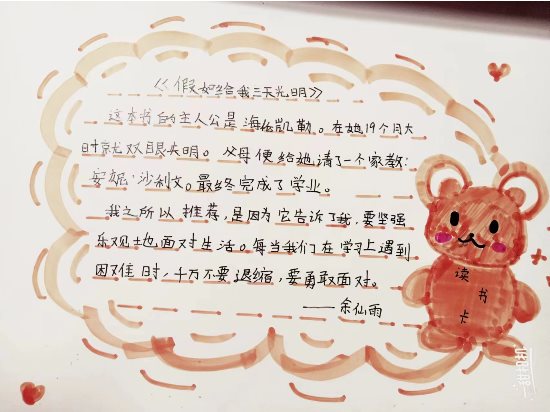 《假如给我三天光明》
这本书的主人公是海伦凯勒。在她19个月大
时就双眼失明。父母便给她请了一个家教:
安妮·沙利文。最终完成了学业。
我之所以推荐,是因为它告诉了我,要坚强
乐观地面对生活。每当我们在学习上遇到
困难时,千万不要退缩,要勇敢面对。
——余仙雨
读书卡
一甜相机